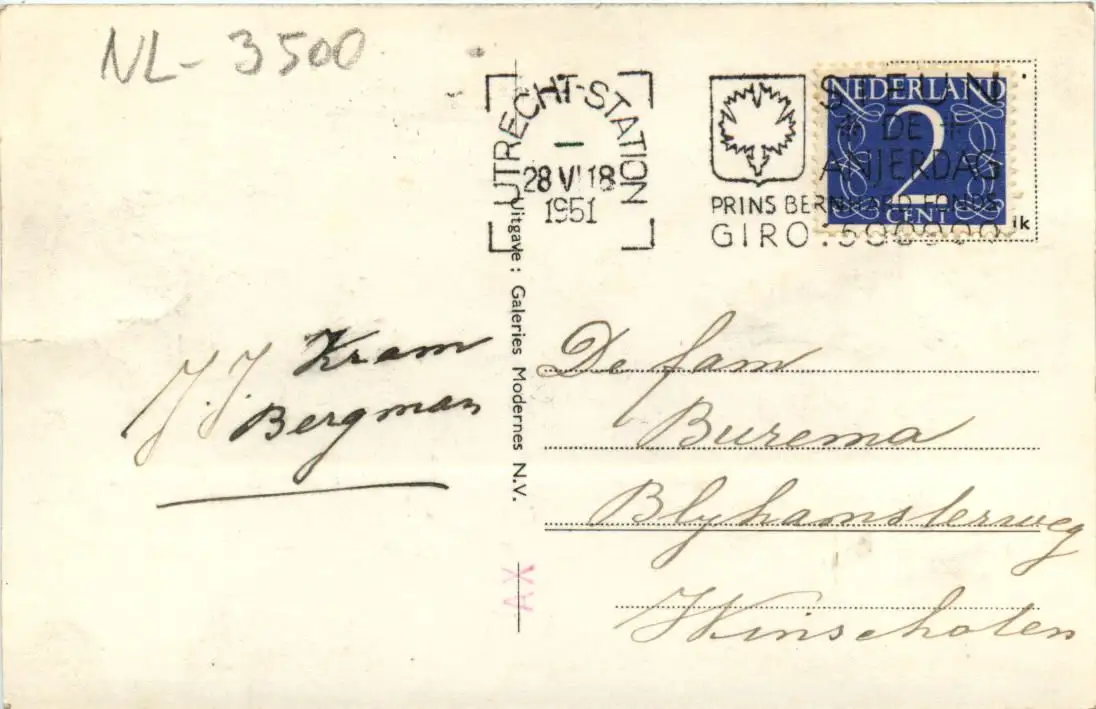 NL-3500
UTRECHT-STATION
28 VI 18
1951
STEUN
* DE *
ANJERDAG
PRINS BERNHARD FONDS
GIRO: 500000
NEDERLAND
2
CENT
ik
Uitgave: Galeries Modernes N.V.
J. J. Kram
Bergman
De fam
Burema
Blyhamsterweg
Winschoten
XA